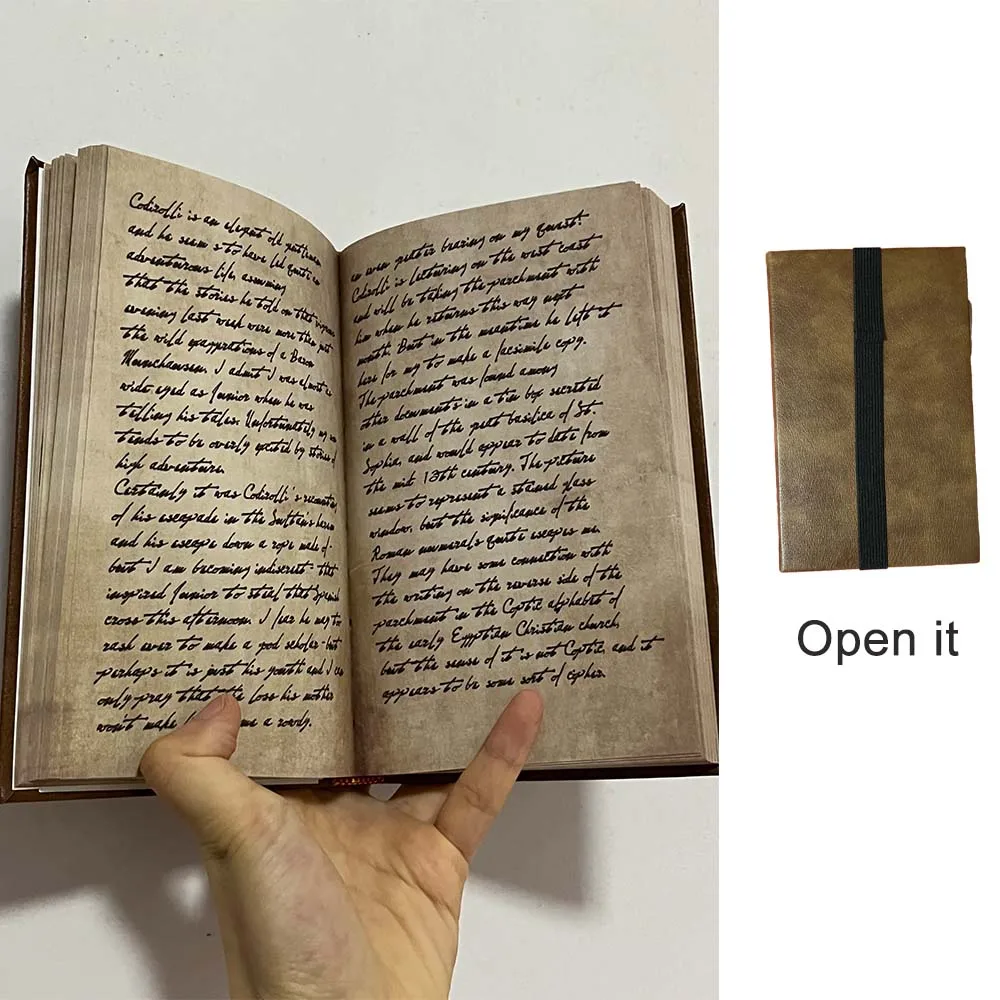 Codirolli is an elegent old gentleman
and he seems to have led quite an
adventurous life, assuming
that the stories he told on that
evening last week were more then just
the wild exaggerations of a Baron
Munchausen. I admit I was almost as
wide-eyed as Junior when he was
telling his tales. Unfortunately my son
tends to be overly excited by stories of
high adventure.
Certainly it was Codirolli's recounting
of his escapade in the Sultan's harem
and his escape down a rope made of-
but I am becoming indiscreet-that
inspired Junior to steal that Spanish
cross this afternoon. I fear he may to
rash ever to make a god scholar-but
perhaps it is just his youth and I can
only pray that the loss his mother
won't make me a rowdy.
an even greater bearing on my quest!
Codirolli is lecturing on the west coast
and will be taking the parchment with
him when he returns this way next
month. But in the meantime he left it
here for my to make a facsimile copy.
The parchment was found among
other documents in a tin box secreted
in a wall of the great basilica of St.
Sophia, and would appear to date from
the mid 13th century. The picture
seems to represent a stained glass
window, but the significance of the
Roman numerals quite escapes me.
They may have some connection with
the writing on the reverse side of the
parchment in the Coptic alphabet of
the early Egyptian Christian church,
but the sense of it is not Coptic, and it
appears to be some sort of cipher.
Open it